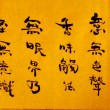 無色聲
香味觸法
無眼界乃
至無意